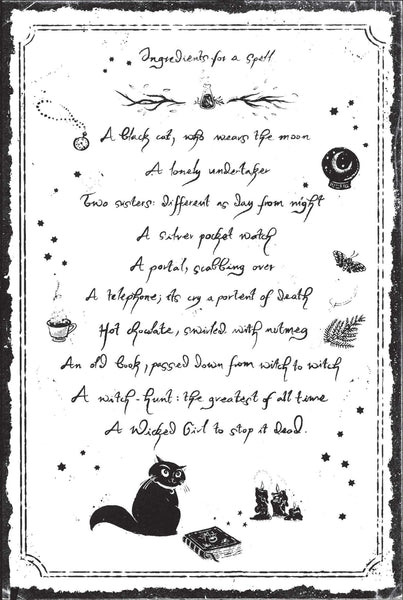 Ingredients for a spell
A black cat, who wears the moon
A lonely undertaker
Two sisters: different as day from night
A silver pocket watch
A portal, scabbing over
A telephone; its cry a portent of death
Hot chocolate, swirled with nutmeg
An old book, passed down from witch to witch
A witch-hunt: the greatest of all time
A Wicked Girl to stop it dead.